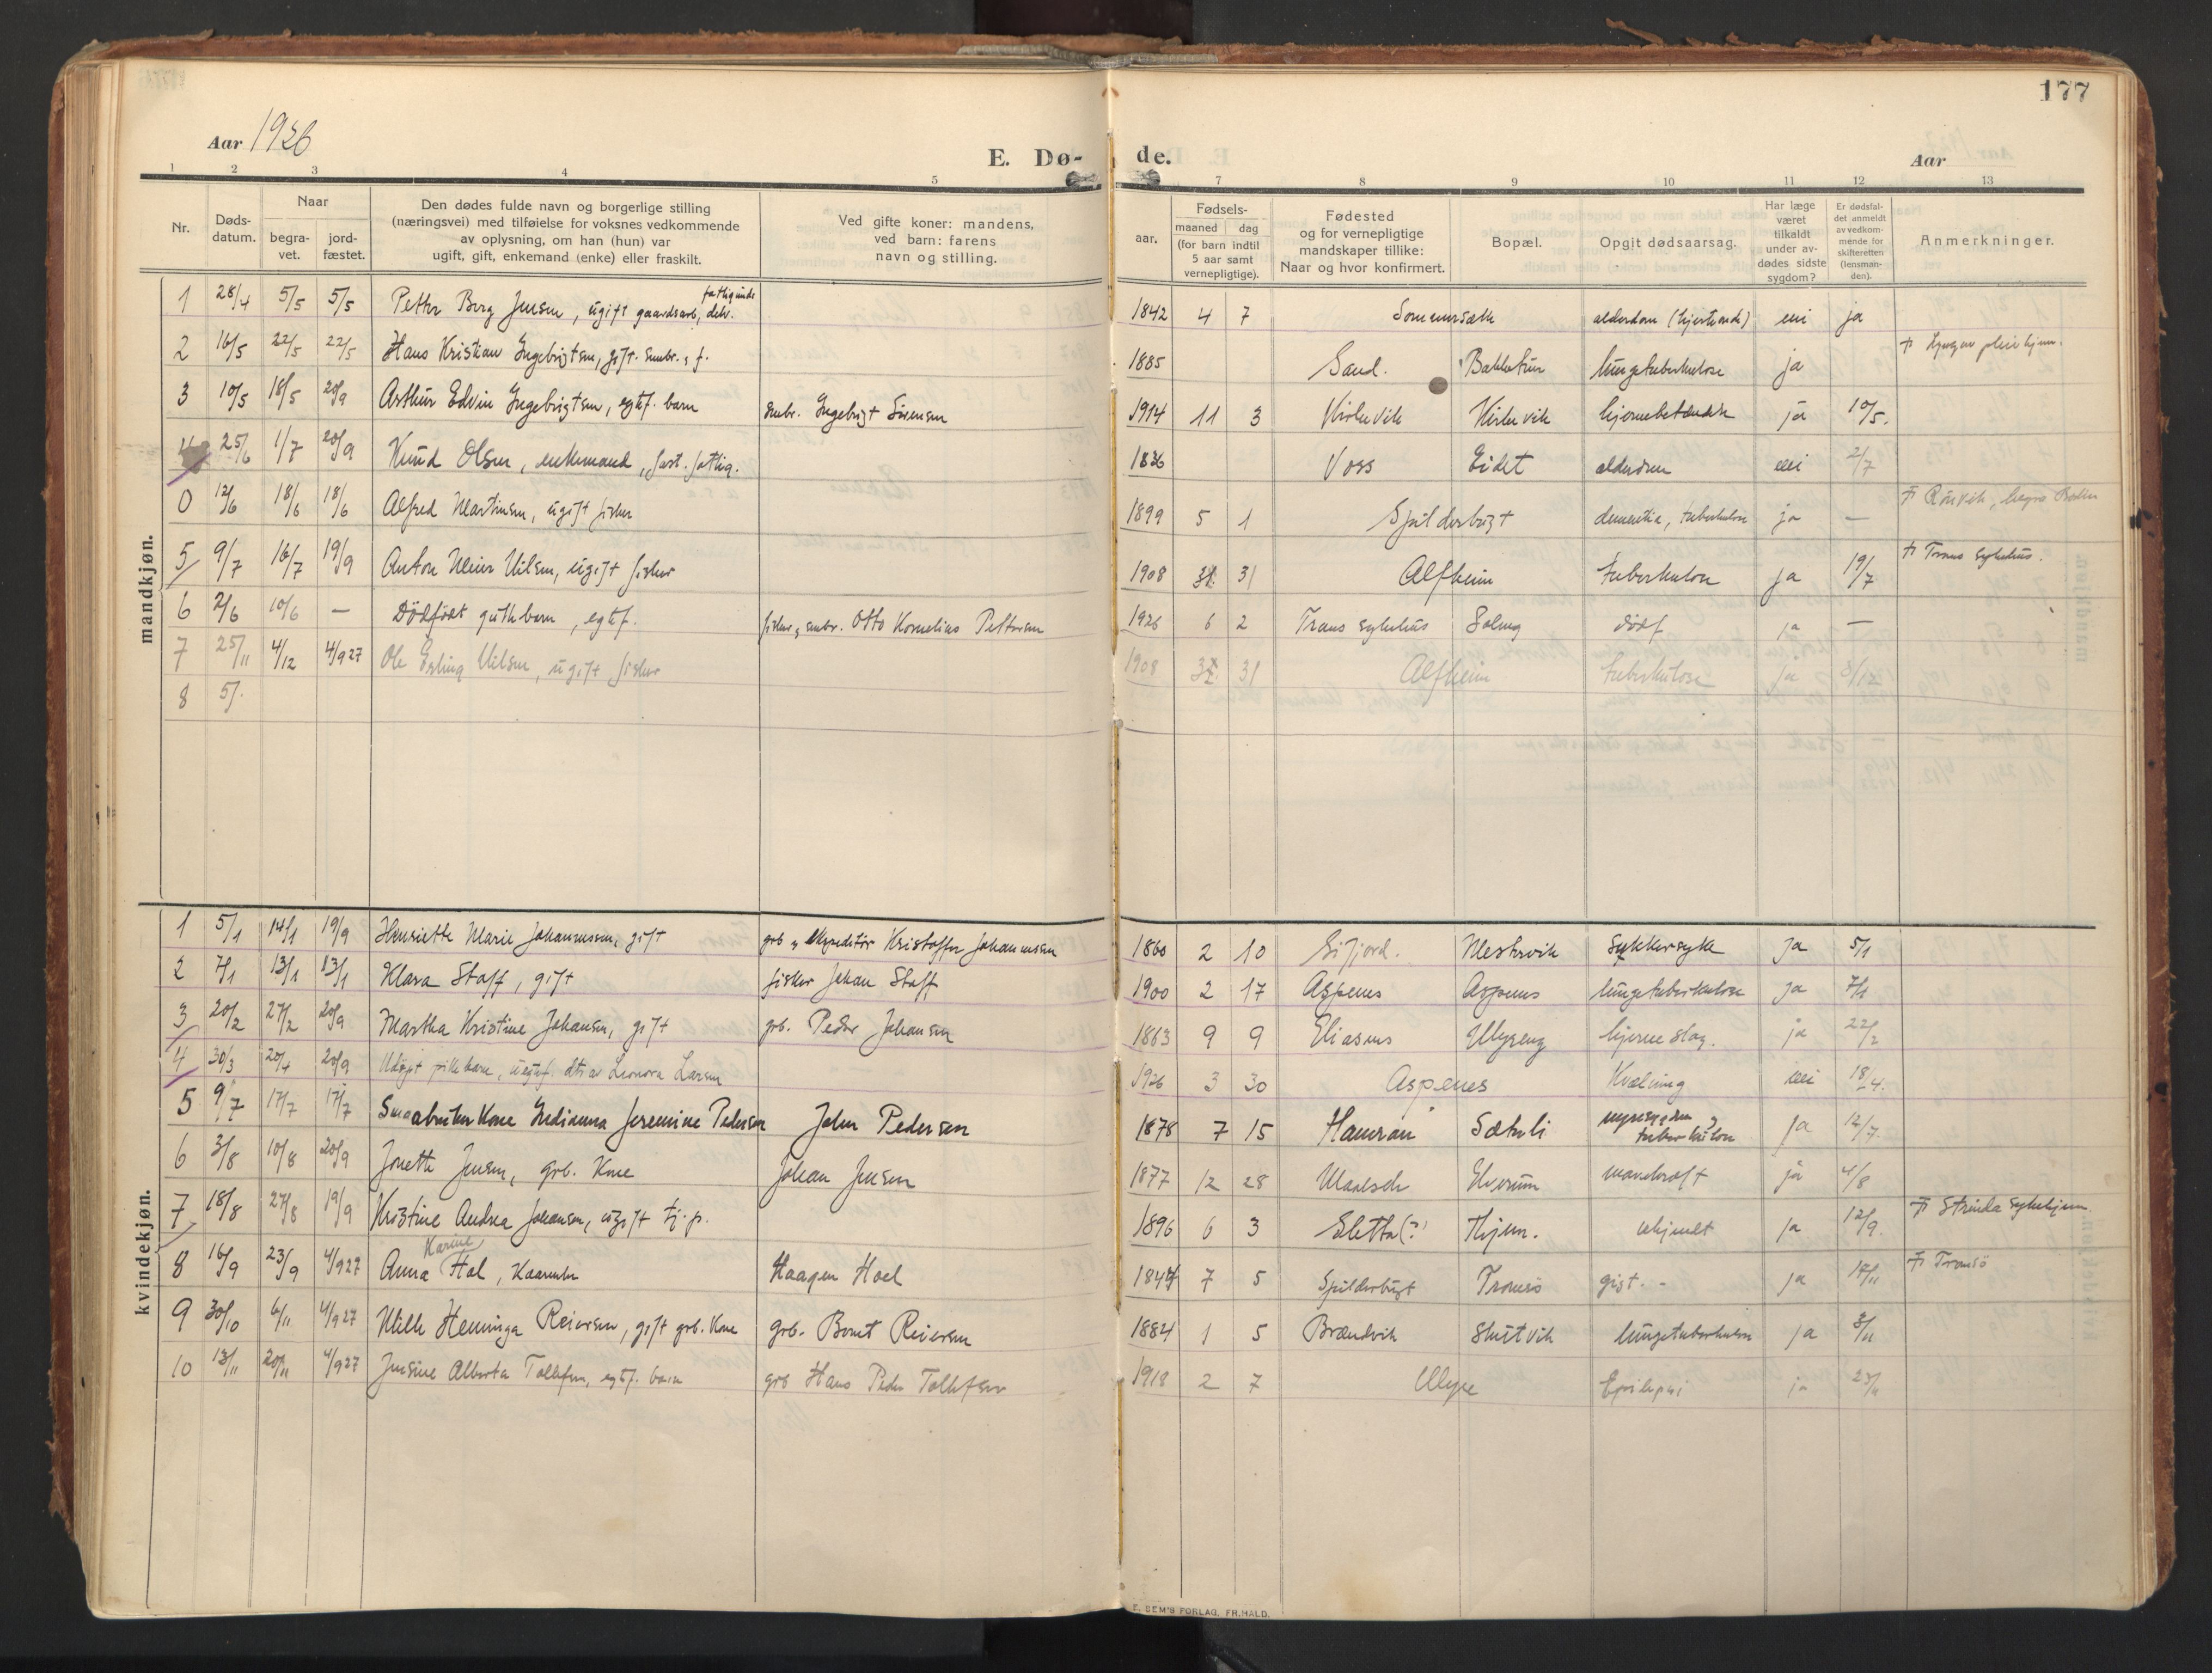 177
Aar 1926
E. Dø-
de.
Aar
1 2 3 4 5 7 8 9 10 11 12 13
Nr.
Døds-
datum.
Naar
begra-
vet.
jord-
fæstet.
Den dødes fulde navn og borgerlige stilling
(næringsvei) med tilføielse for voksnes vedkommende
av oplysning, om han (hun) var
ugift, gift, enkemand (enke) eller fraskilt.
Ved gifte koner: mandens,
ved barn: farens
navn og stilling.
aar.
Fødsels-
maaned dag
(for barn indtil
5 aar samt
vernepligtige).
Fødested
og for vernepligtige
mandskaper tillike:
Naar og hvor konfirmert.
Bopæl.
Opgit dødsaarsag.
Har læge
været
tilkaldt
under av-
dødes sidste
sygdom?
Er dødsfal-
det anmeldt
av vedkom-
mende for
skifteretten
(lensman-
den).
Anmerkninger.
mandkjøn.
1 28/4 5/5 5/5 Petter Berg Jensen, ugift gaardsarb., 1842 4 7 alderdom nei ja
2 16/5 22/5 22/5 Hans Kristian Ingebrigtsen, gift. smbr. f. 1885 Sand. lungetuberkulose ja
3 10/5 18/5 20/9 Arthur Edvin Ingebrigtsen, egtf. barn smbr. Ingebrigt Sörensen 1914 11 3 Kirkevik Kirkevik ja 10/5.
4 25/6 1/7 20/9 Knud Olsen, enkemand, 1836 Voss Eidet nei 2/7
0 12/6 18/6 18/6 Alfred Martinsen, ugift fisker 1899 5 1 Spilderbugt dementia, tuberkulose ja —
5 9/7 16/7 19/9 Anton Meier Nilsen, ugift fisker 1908 31 Alfheim tuberkulose ja 19/7 Troms sykehus.
6 2/6 10/6 — Dödfödt guttebarn, egtf. fisker, smbr. Otto Kornelius Pettersen 1926 6 2 Troms sykehus Soleng dödf ja —
7 25/11 4/12 4/9 27 Ole Erling Nilsen, ugift fisker 1908 31 Alfheim tuberkulose ja 8/12
8 5/.
kvindekjøn.
1 5/1 14/1 19/9 Henriette Marie Johannessen, gift ekspeditör Kristoffer Johannessen 1860 2 10 Sifjord. Mestervik Sukkersyke ja 5/1
2 7/1 13/1 13/1 Klara Staff, gift fisker Johan Staff 1900 2 17 Aspenes Aspenes lungetuberkulose ja 7/1
3 20/2 27/2 20/9 Martha Kristine Johansen, gift grb. Peder Johansen 1863 9 9 Eliasnes hjerneslag. ja 22/2
4 30/3 20/4 20/9 Udöpt pikebarn, uegtf. Leonora Larsen 1926 3 30 Aspenes Kvælning nei 18/4.
5 9/7 17/7 17/7 Smaabruker Kone Indianna Jeremine Pedersen John Pedersen 1878 7 15 Hamran Sætuli tuberkulose ja 12/7.
6 3/8 10/8 20/9 Jonette Jensen, grb. Kone Johan Jensen 1877 12 28 Maalselv Elverum mavekræft ja 4/8
7 18/8 27/8 19/9 Kristine Andrea Johansen, ugift tj.p. 1896 6 3 Sletta(?) Hjem. ukjendt ja 12/9. Strinda sykehjem.
8 16/9 23/9 4/9 27 Anna Karine Hol, Haagen Hoel 1844 7 5 Spilderbugt Tromsö gigt. - ja Tromsö
9 30/10 6/11 4/9 27 Mille Heminga Reiersen, gift grb. Kone grb. Bernt Reiersen 1884 1 5 Brændvik lungetuberkulose ja 8/11
10 13/11 20/11 4/9 27 Jensine Alberta Tollefsen, egtf. barn grb Hans Peder Tollefsen 1918 2 7 Epilepsi ja 23/11
E. SEM'S FORLAG, FR.HALD.